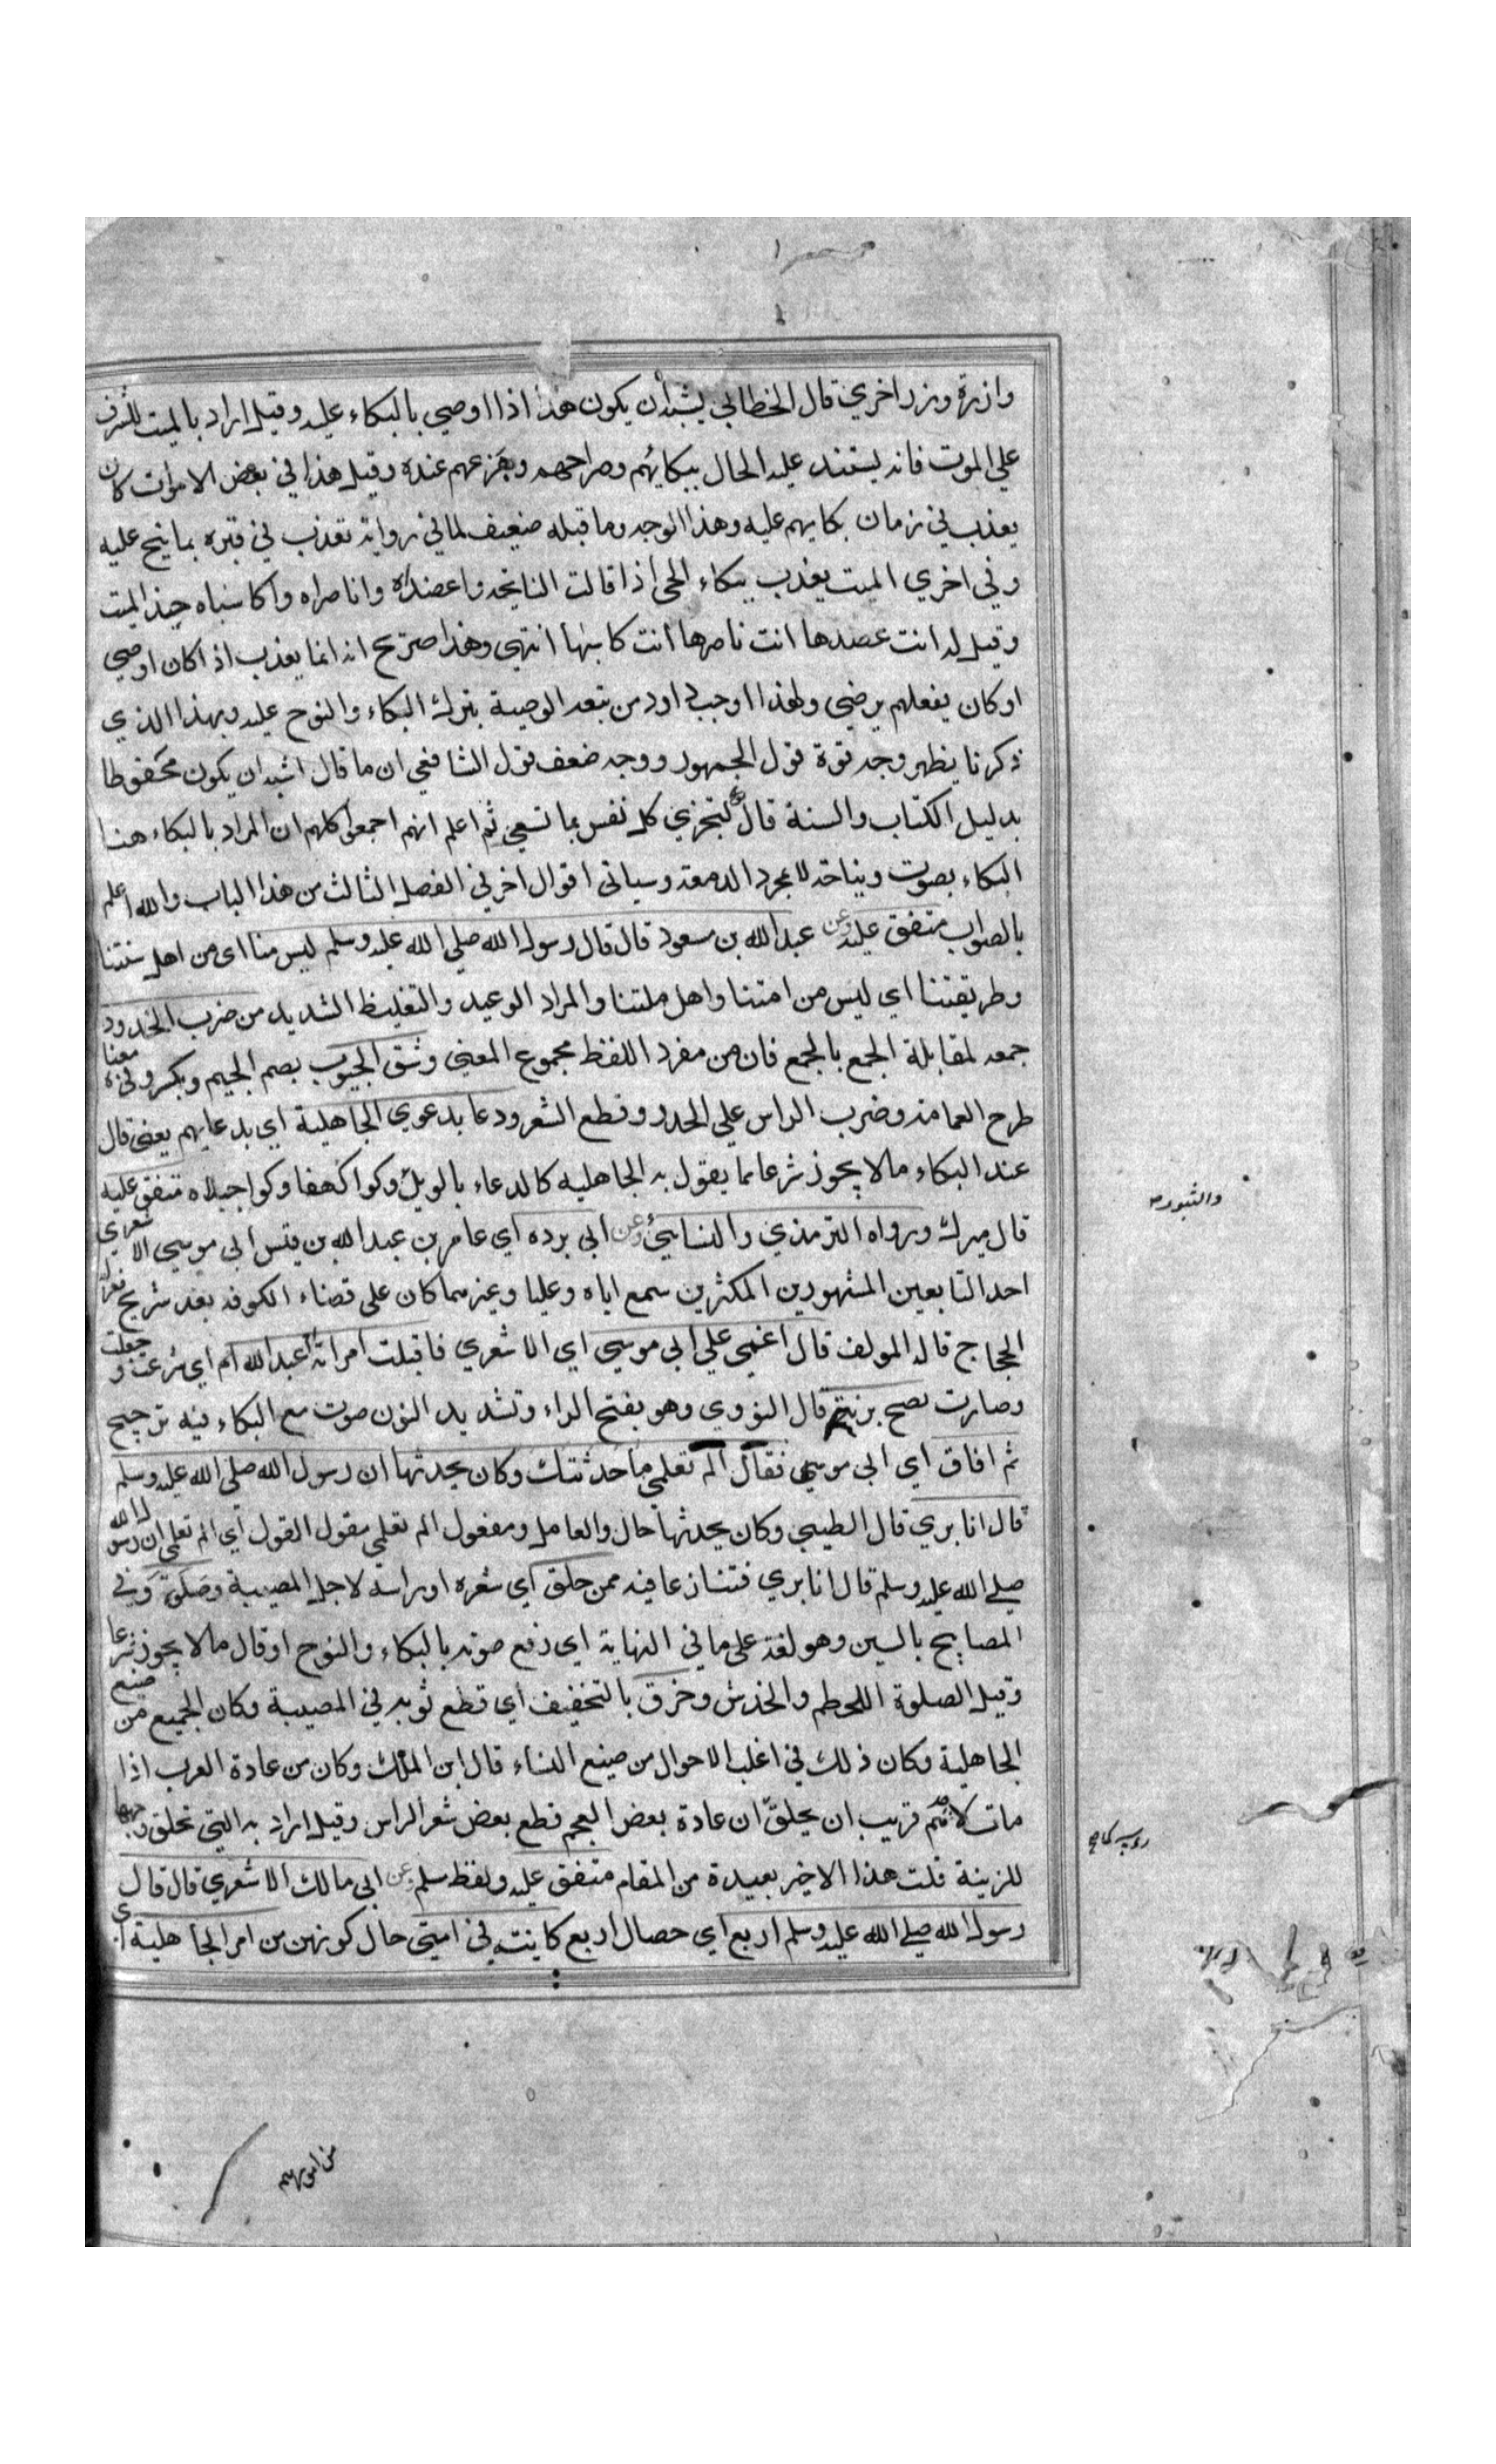 وازرة وزر اخري قال الخطابي يشبه أن يكون هذا اذا اوصي بالبكاء عليه وقيل اراد بالميت المشرف
علي الموت فانه يشتد عليه الحال ببكائهم وصراخهم وجزعهم عنده وقيل هذا في بعض الاموات كان
يعذب في زمان بكايهم عليه وهذا الوجه وما قبله ضعيف لما في رواية تعذب في قبره بما نيح عليه
وفي اخري الميت يعذب ببكاء الحي اذا قالت النايحة واعضداه واناصراه واكاسياه جبذ الميت
وقيل له انت عضدها انت ناصرها أنت كاسيها انتهى وهذا صريح انه انما يعذب اذا كان اوصي
او كان بفعلهم يرضي ولهذا اوجب داود من تبعه الوصية بترك البكاء والنوح عليه وبهذا الذي
ذكرنا يظهر وجه قوة قول الجمهور ووجه ضعف قول الشافعي ان ما قال اشبه ان يكون محفوظا
بدليل الكتاب والسنة قال لتجزي كل نفس بما تسعي ثم اعلم انهم اجمعوا كلهم ان المراد بالبكاء هنا
البكاء بصوت ونياحة لا بمجرد الدمعة وسياتى اقوال اخر في الفصل الثالث من هذا الباب والله أعلم
بالصواب متفق عليه وعن عبد الله بن مسعود قال قال رسول الله صلي الله عليه وسلم ليس منا اى من اهل سنتنا
وطريقتنا اي ليس من امتنا واهل ملتنا والمراد الوعيد والتغليظ الشديد من ضرب الخدود
جمعه لمقابلة الجمع بالجمع فان من مفرد اللفظ مجموع المعني وشق الجيوب بضم الجيم وبكسر وفي معناه
طرح العمامة وضرب الراس علي الجدر وقطع الشعر ودعا بدعوي الجاهلية اي بدعايهم يعنى قال
عند البكاء ما لا يجوز شرعا مما يقول به الجاهليه كالدعاء بالويل وكواكهفا وكواجبلاه متفق عليه
والثبور
قال ميرك ورواه الترمذي والنسائي وعن ابي برده اي عامر بن عبد الله بن قيس ابي موسي الاشعري
احد التابعين المشهورين المكثرين سمع اباه وعليا وغيرهما كان على قضاء الكوفة بعد شريح فعزله
الحجاج قاله المولف قال اغمي علي ابي موسي اي الاشعري فاقبلت امراته ام عبد الله اي شرعت وجعلت
وصارت تصيح برنة قال النووي وهو بفتح الراء وتشديد النون صوت مع البكاء فيه ترجيح
ثم افاق اي ابي موسي فقال الم تعلمي ما حدثتك وكان يحدثها ان رسول الله صلي الله عليه وسلم
قال انا بري قال الطيبي وكان يحدثها حال والعامل ومفعول الم تعلمي مقول القول اي الم تعلمي ان رسول الله
صلي الله عليه وسلم قال انا بري فتنازعا فيه ممن حلق اي شعره او راسه لاجل المصيبة وصلق وفي
المصابيح بالسين وهو لغة على ما في النهاية اي رفع صوته بالبكاء والنوح او قال ما لا يجوز شرعا
وقيل الصلوة اللطم والخدش وخرق بالتخفيف اي قطع ثوبه في المصيبة وكان الجميع من صنيع
الجاهلية وكان ذلك في اغلب الاحوال من صنيع النساء قال ابن الملك وكان من عادة العرب اذا
مات لاحدهم قريب ان يحلق ان عادة بعض العجم قطع بعض شعر الراس وقيل اراد به التي تحلق وجهها
للزينة قلت هذا الاخير بعيدة من المقام متفق عليه ولفظ سلم وعن ابى مالك الاشعري قال قال
رسول الله صلي الله عليه وسلم اربع اي خصال اربع كاينة في امتي حال كونهن من امر الجاهلية اي
من امورهم